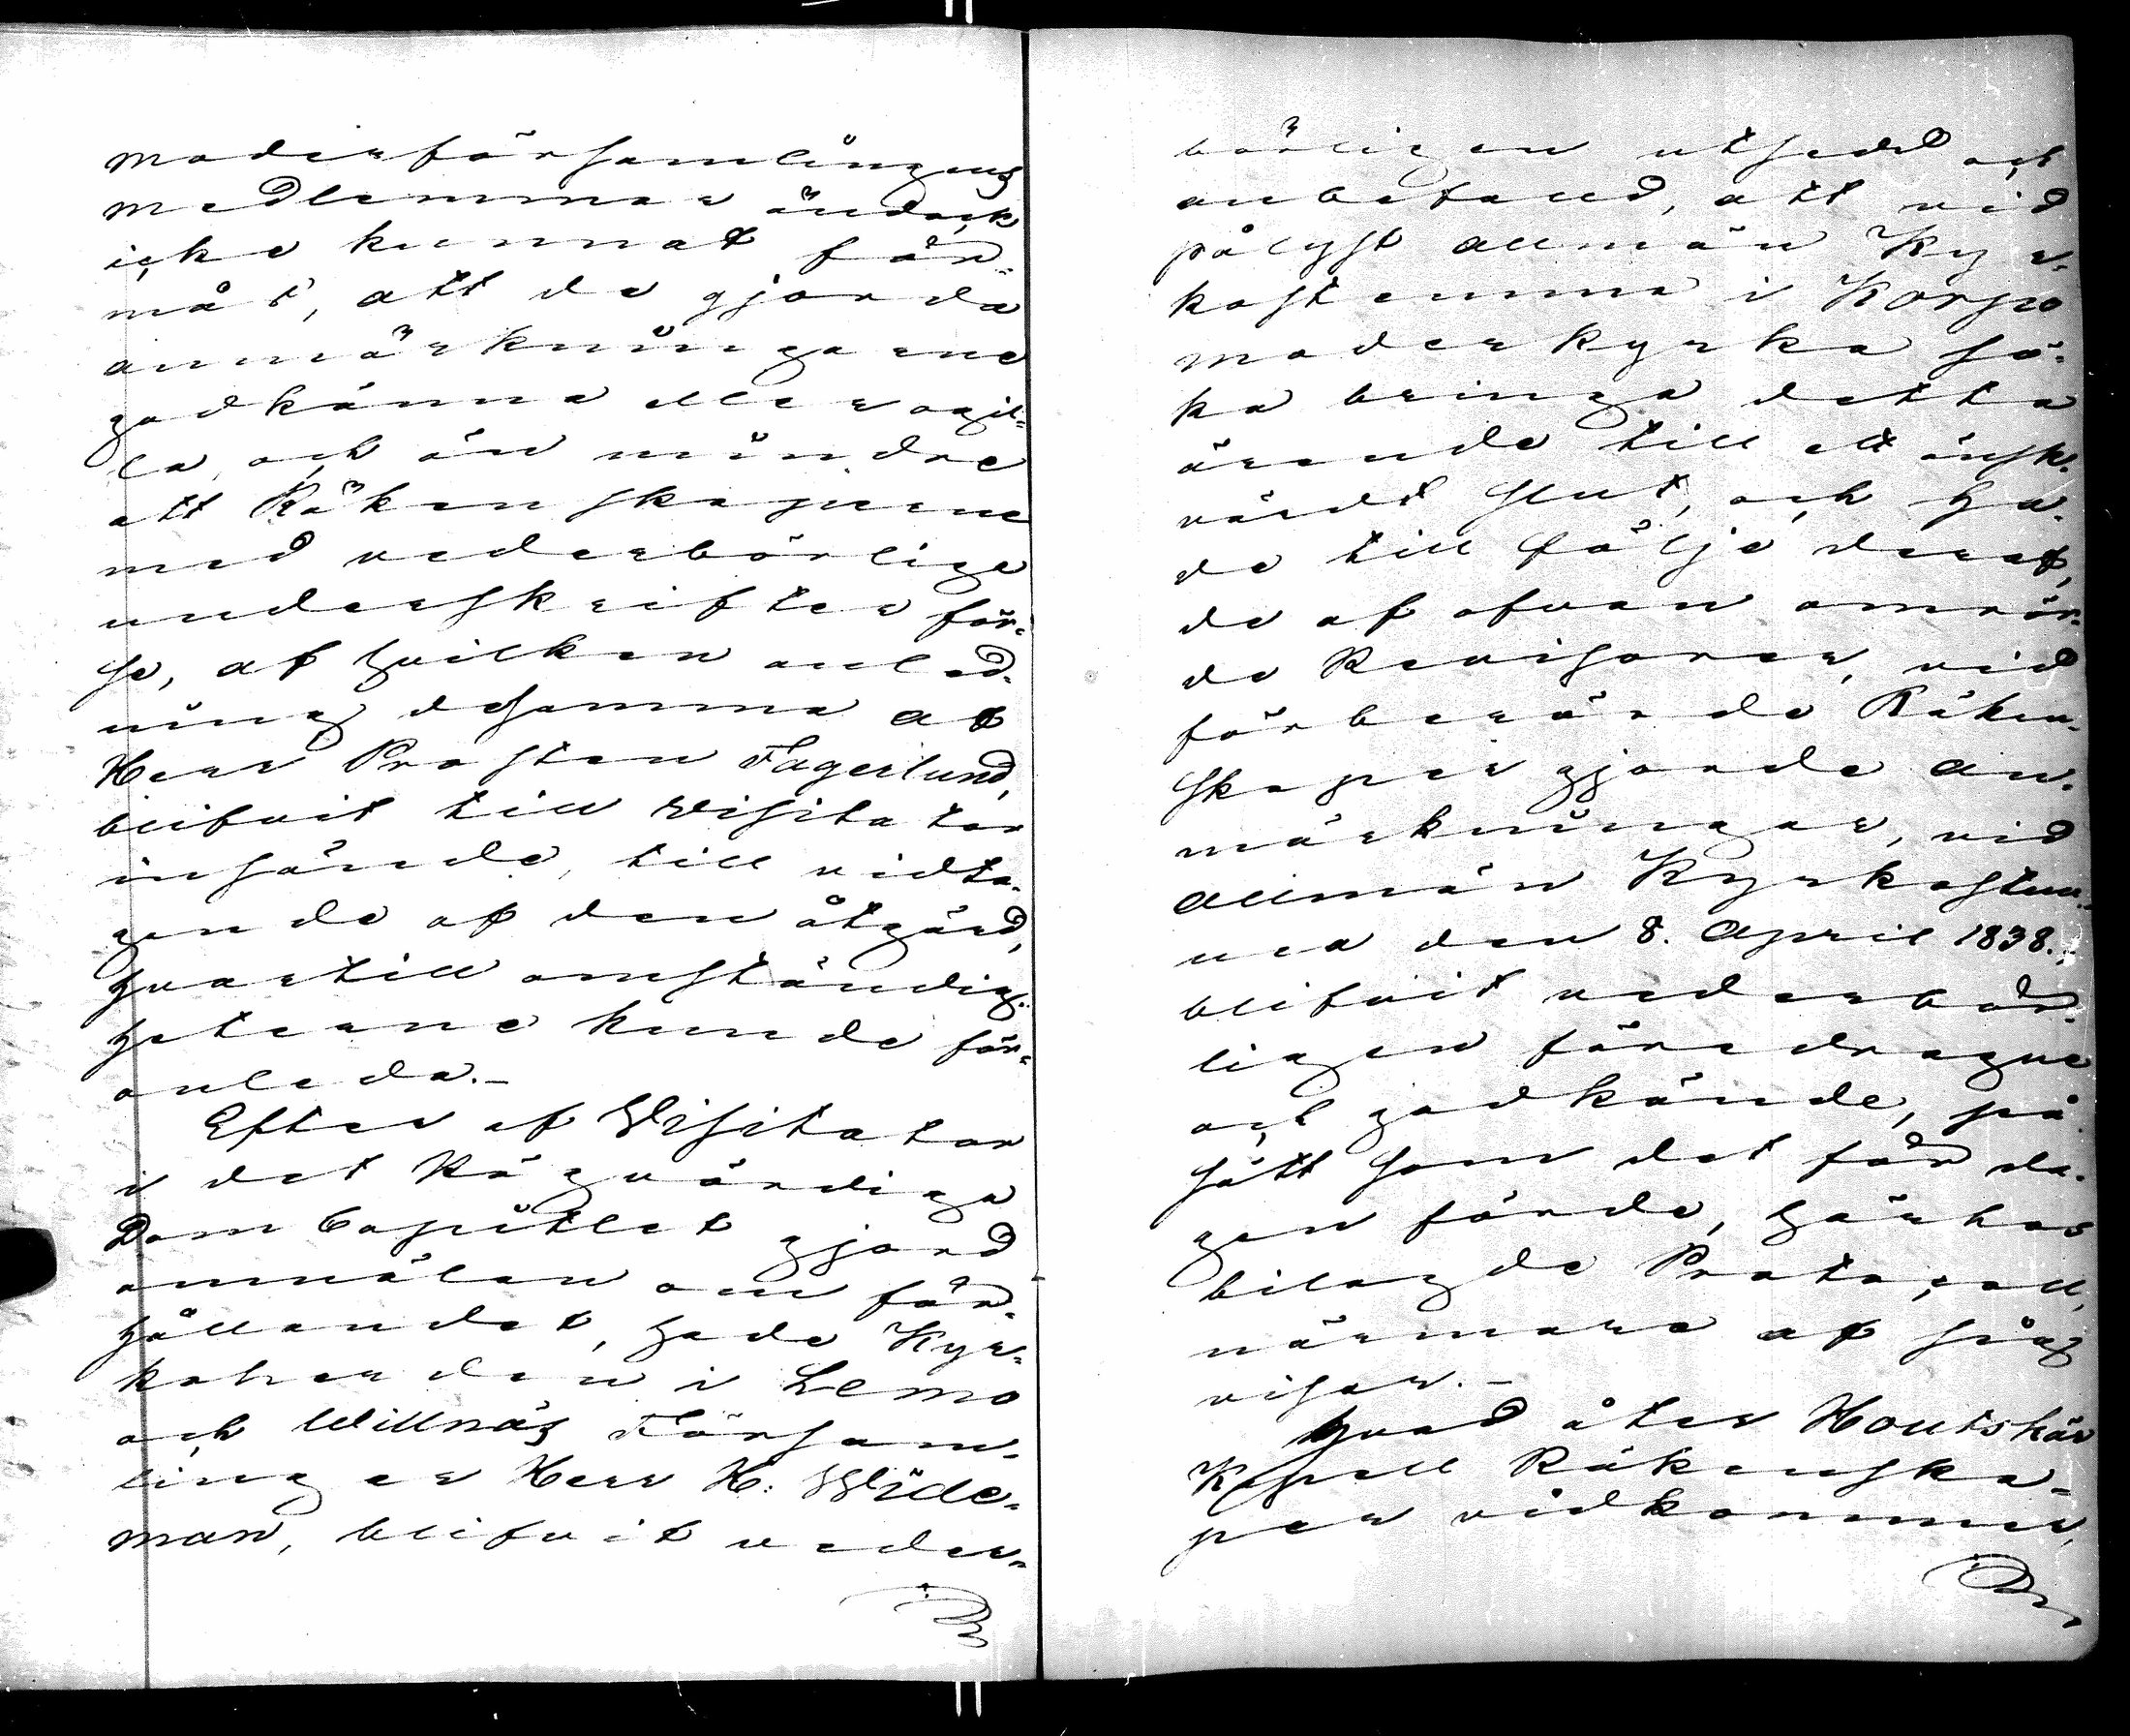 moderförsamlingens
medlemmar ändock
icke kunnat för-
måt, att de gjorda
anmärkningarne
godkänna eller ogil-
la, och än mindre
att Räkenskaperne
med vederbörlige
underskrifter för-
se, af hvilken anled-
ning desamma af
Herr Prosten Fagerlund,
blifvit till Visitator
insände, till vidta-
gande af den åtgärd,
hvartill omständig-
heterne kunde för-
anleda.-
Efter af Visitator
i det Högvördiga
Dom Capitlet gjord
anmälan om för-
hållandet, hade Kyr-
koherden i Lemo
och Willnäs Försam-
lingar Herr H: Wide-
man, blifvit veder-
börligen utsedd och
anbetrodd, att vid
pålyst allmän Kyr-
kostemma i Korpo
moderkyrka sö-
ka bringa detta
ärende till ett önsk-
värdt slut, och ha-
de till följe deraf,
de af ofvan omrör-
de Revisorer, vid
förberörde Räken-
skaper gjorde an-
märkningar, vid
allmän Kyrkostem-
ma den 8. April 1838.,
blifvit vederbör-
ligen föredragne
och godkände, på
sätt som det för da-
gen förde, härhos
bilagde Protocoll,
närmare af sig
visar.-
Hvad åter Houtskär
Kapell Räkenska-
per vidkommer,